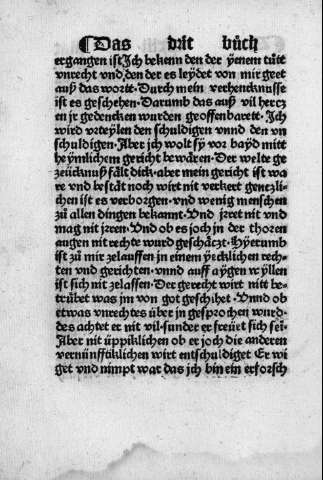 ¶Das drit bůch
ergangen ist Jch bekenn den der yenem tůtt
vnrecht vnd den der es leydet von mir geet
auß das wortt· Durch mein verhencknusse
ist es geschehen· Darumb das auß vil hercz
en jr gedencken wurden geoffenbarett· Jch
wird vrteylen den schuldigen vnnd den vn
schuldigen· Aber jch wolt sÿ vor bayd mitt
heymlichem gericht bewären· Der welte ge
zeücknuß fält dick· aber mein gericht ist wa
re vnd bestät noch wirt nit verkert gentzli-
chen ist es verborgen· vnd wenig menschen
zů allen dingen bekannt· Vnd jrret nit vnd
mag nit jrren· Vnd ob es joch in der thoren
augen nit rechte wurd geschäczt· Hyerumb
ist zů mir zelauffen jn einem yecklichen rech-
ten vnd gerichten· vnnd auff aygen wyllen
ist sich nit zelassen· Der gerecht wirt nitt be-
trůbet was jm von got geschihet· Vnnd ob
etwas vnrechtes über jn gesprochen wurd-
des achtet er nit vil· sunder er freüet sich sei·
Aber nit üppiklichen ob er joch die anderen
vernünfftiklichen wirt entschuldiget Er wi
get vnd nimpt war das jch bin ein erforsch